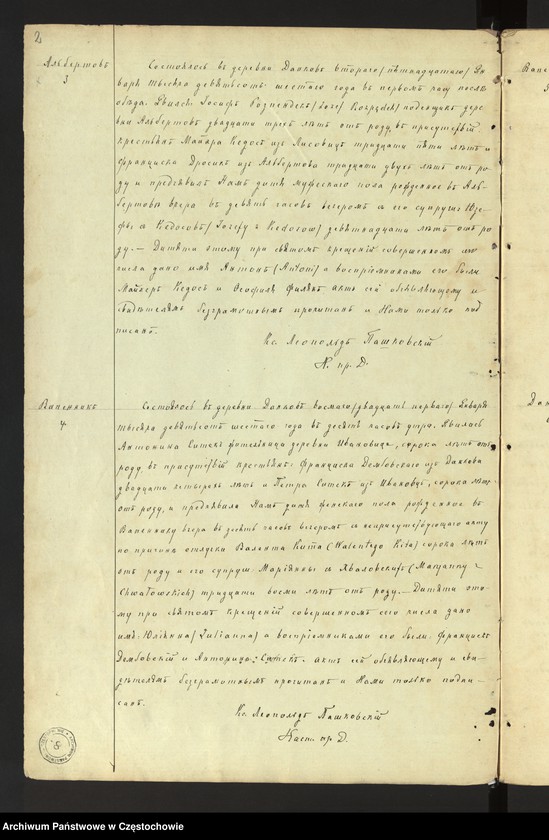 2
Альбертовъ
3
Состоялось въ деревни Данковъ втораго /пятнадцатаго/ Ян
варя тысяча девятьсотъ шестаго года въ первомъ часу послѣ
обѣда. Явился Іосифъ /Józef поденщикъ дерев
ни Альбертовъ двадцати трехъ лѣтъ отъ роду, въ присутствіи
крестьянъ Кедося изъ Лисовицъ тридцати пяти лѣтъ и
Франциска изъ Альбертова тридцати двухъ лѣтъ отъ ро-
ду и предъявилъ Намъ дитя мужескаго пола рожденное въ Аль-
бертовѣ вчера въ девять часовъ вечеромъ съ его супруги Іозе-
фы съ Кедосовъ /Józefy z Kedosow/ девятнадцати лѣтъ отъ ро
ду. — Дитяти этому при святомъ крещеніи совершенномъ сего
числа дано имя Антонъ /Antoni/ а воспріемниками его были
Кедосъ и Филякъ актъ сей объявляющему и
свидѣтелямъ безграмотнымъ прочитанъ и Нами только под
писанъ.
Кс. Леопольдъ Пашковскій
Н. пр. Д.
Ваненникъ
4
Состоялось въ деревни Данковъ восмаго /двадцать перваго/ Января
тысяча девятьсотъ шестаго года въ десять часовъ утра. Явилась
Антонина Ситекъ жительница деревни Ивановице, сорока лѣтъ отъ
роду, въ присутствіи крестьянъ: Франциска Дембовскаго изъ Данкова
двадцати четырехъ лѣтъ и Петра Ситекъ изъ Ивановце, сорока лѣтъ
отъ роду, и предъявила Намъ дитя женскаго пола рожденное въ
Ваненнику вчера въ десять часовъ вечеромъ съ неприсутствующаго акту
по причинѣ отлучки Валента Кита (Walentego Kita) сорока лѣтъ
отъ роду и его супруги Маріянны съ Хваловскихъ (Maryanny z
Chwałowskich) тридцати восми лѣтъ отъ роду. — Дитяти это-
му при святомъ крещеніи совершенномъ сего числа дано
имя Юліянна / Julianna / а воспріемниками его были Францискъ
Дембовскій и Антонина Ситекъ актъ сей объявляющему и сви-
дѣтелямъ безграмотнымъ прочитанъ и Нами только подпи-
санъ.
Кс. Леопольдъ Пашковскій
Наст. пр. Д.
Archiwum Państwowe w Częstochowie